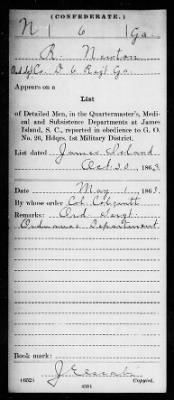 (CONFEDERATE.)
N 6 Ga
R. Newton
Co. D 6 Regt Ga.
Appears on a
List
of Detailed Men, in the Quartermaster's, Medi-
cal and Subsistence Departments at James
Island, S. C., reported in obedience to G. O.
No. 26, Hdqrs. 1st Military District.
List dated James Island
Oct 30, 1863
Date May 1, 1863
By whose order Col. Colquitt
Remarks: Ord Sergt
Ordnance Department
Book mark:
(652) Copyist.